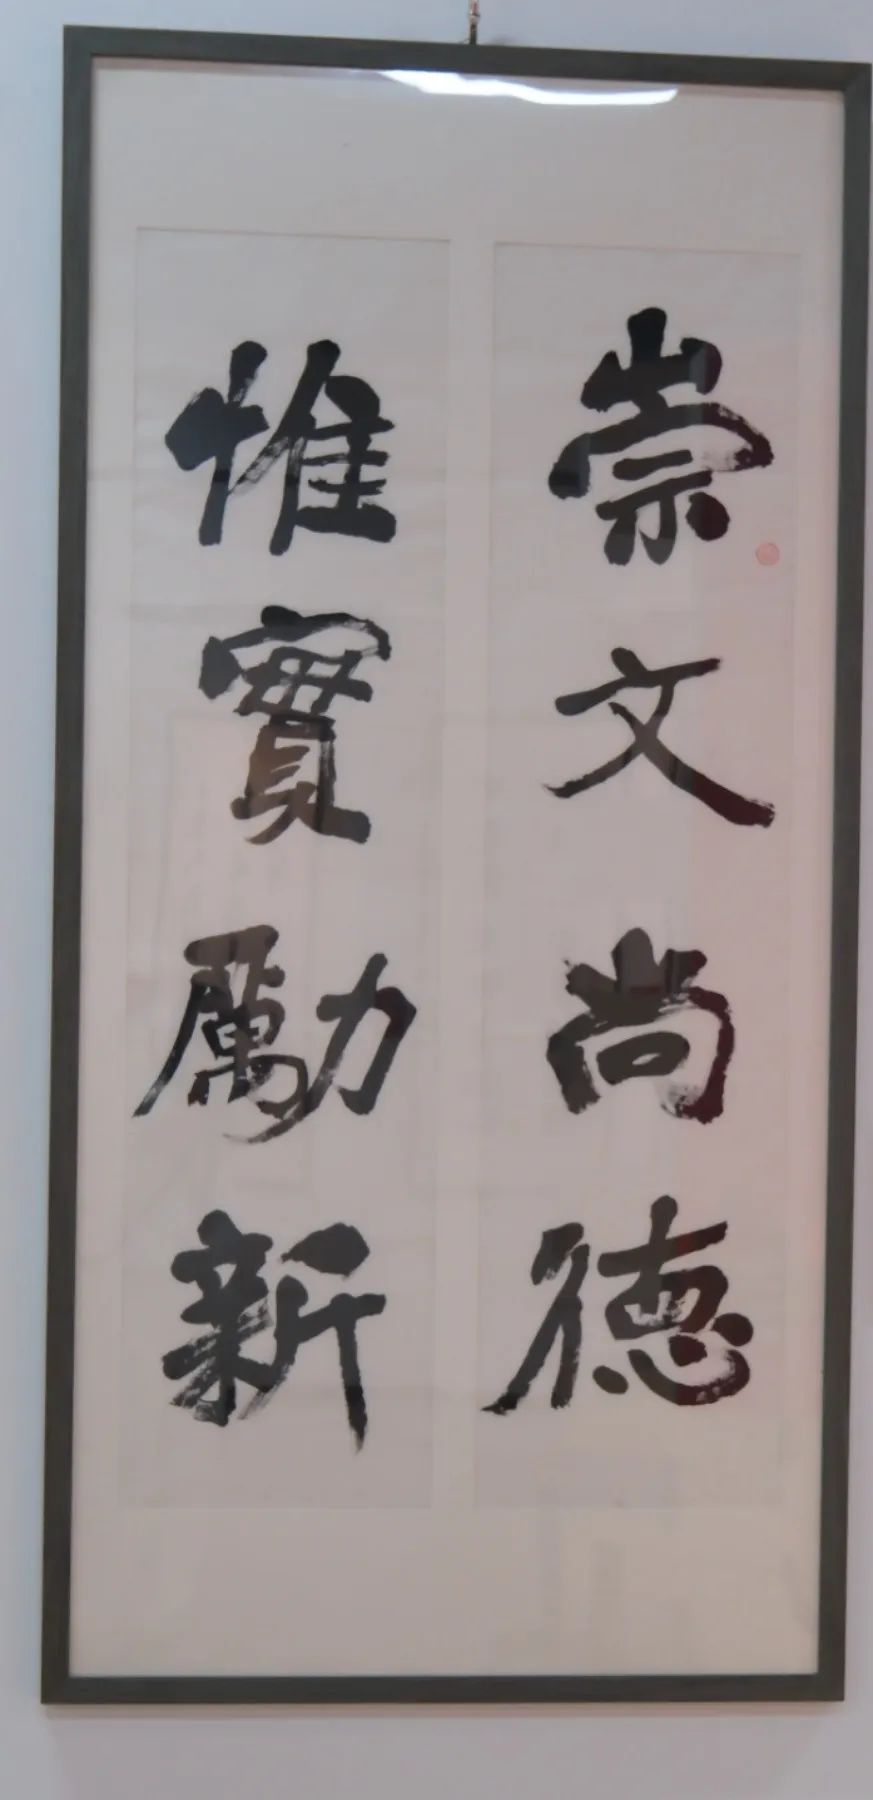 崇文尚德
惟實勵新